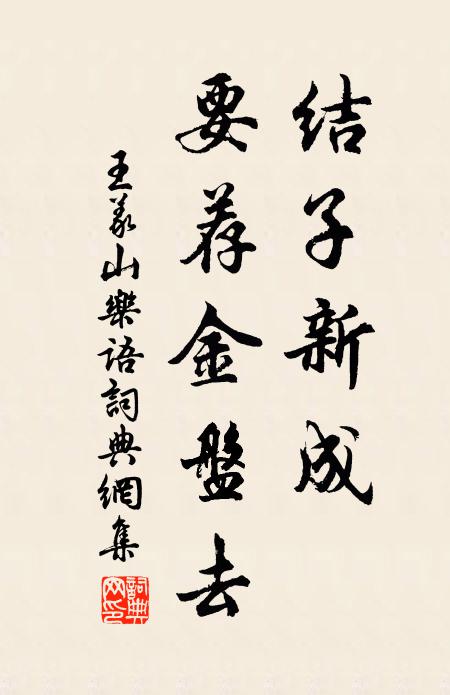 结子新成
要荐金盤去
王義山樂語詞典網集
詞典网印